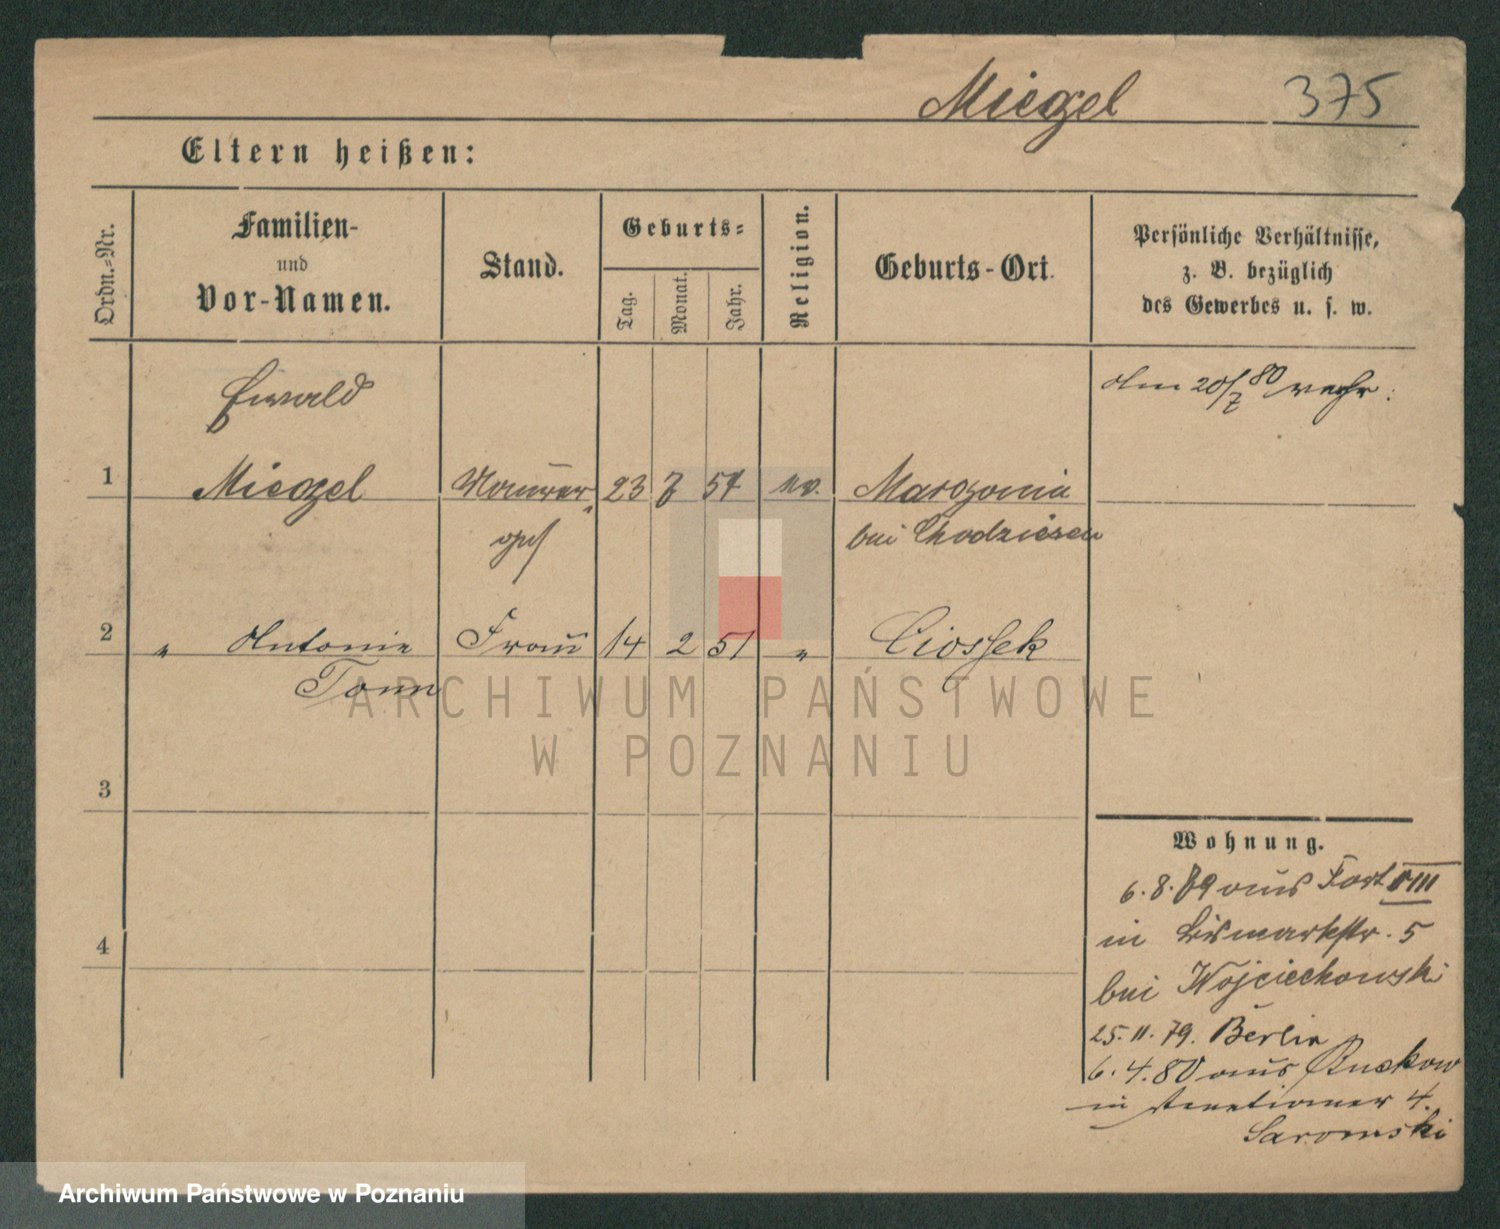 Miegel 375
Eltern heißen:
Ordn.=Nr.
Familien-
und
Vor-Namen.
Stand.
Geburts=
Tag.
Monat.
Jahr.
Religion.
Geburts-Ort.
Persönliche Verhältnisse,
z. B. bezüglich
des Gewerbes u. s. w.
Ewald
den 20/7 80
1 Miegel Maurer 23 54 ev. Margonin
ges bei Chodziesen
2 " Antonie Frau 14 2 51 " Ciossek
Tonn
ARCHIWUM PAŃSTWOWE
W POZNANIU
3
4
Wohnung.
6. 8. 79 aus Fort VIII
in Bismarkstr. 5
bei Wojciechowski
25. 11. 79. Berlin
6. 4. 80 aus Ruckow
in 4.
Saromski
Archiwum Państwowe w Poznaniu